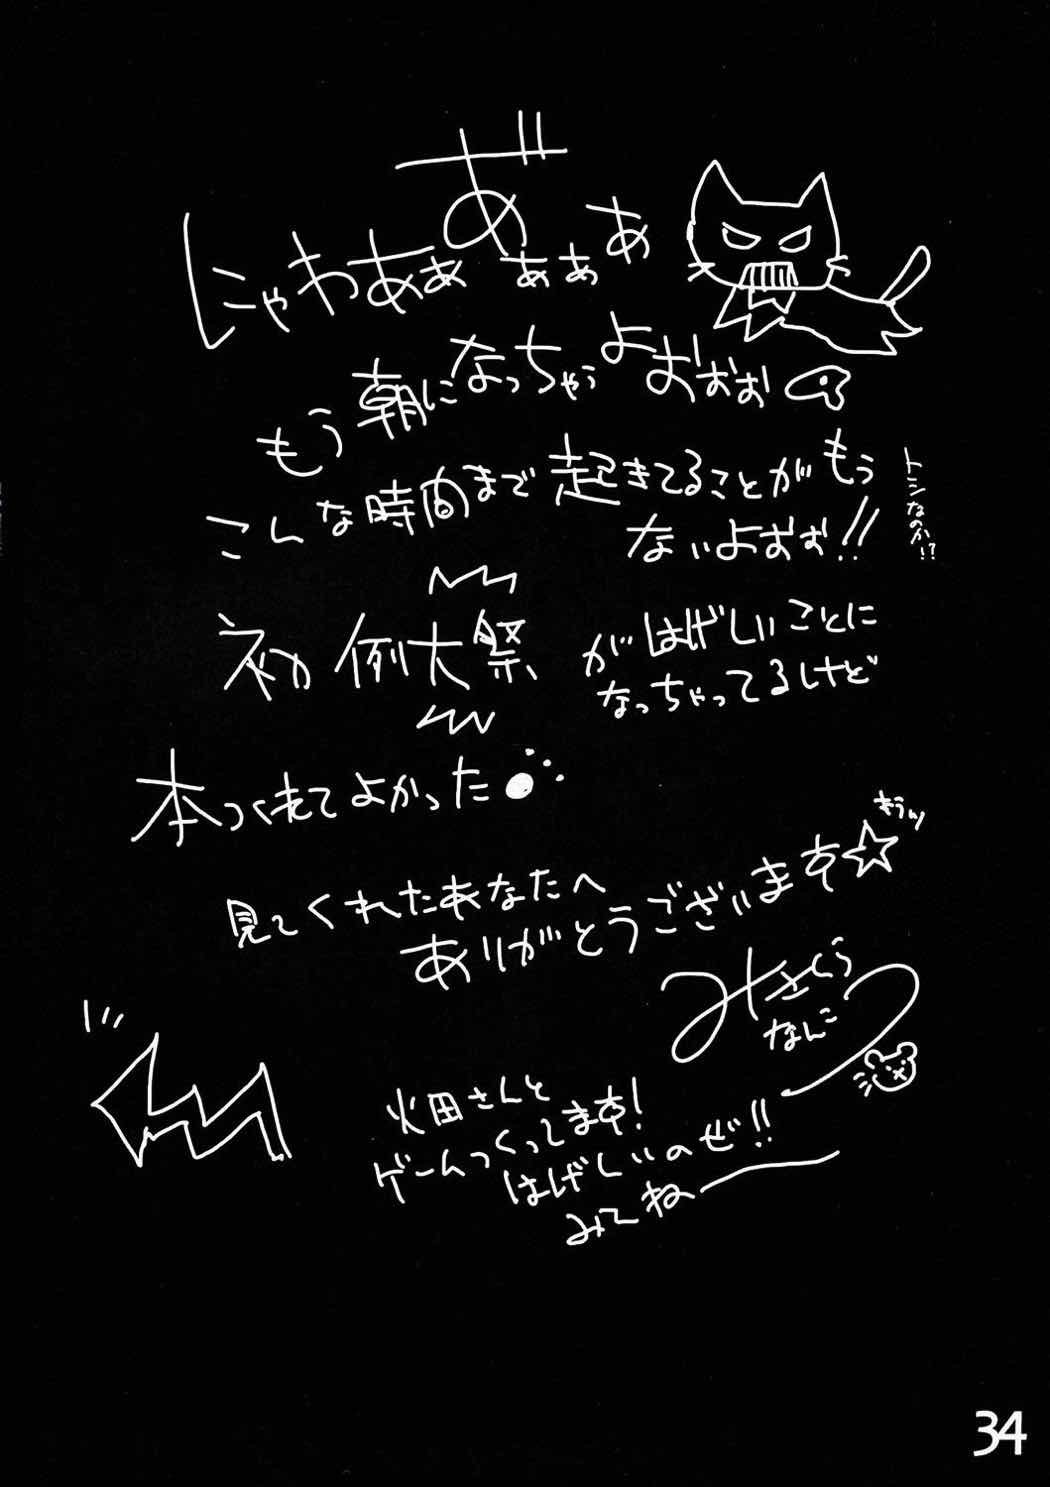 にゃわあぁあ゛ぁぁあ
もう朝になっちゃぅよおぉぉ
こんな時間まで起きてることがもぅ
ないよおぉ!!
トシなのか!?
初 例大祭
がはげしいことに
なっちゃってるけど
本つくれてよかった
見てくれたあなたへ
ありがとうございます☆
きらっ
みさくら
なんこつ
火田さんと
ゲームつくってます!
はげしいのぜ!!
みてね
34